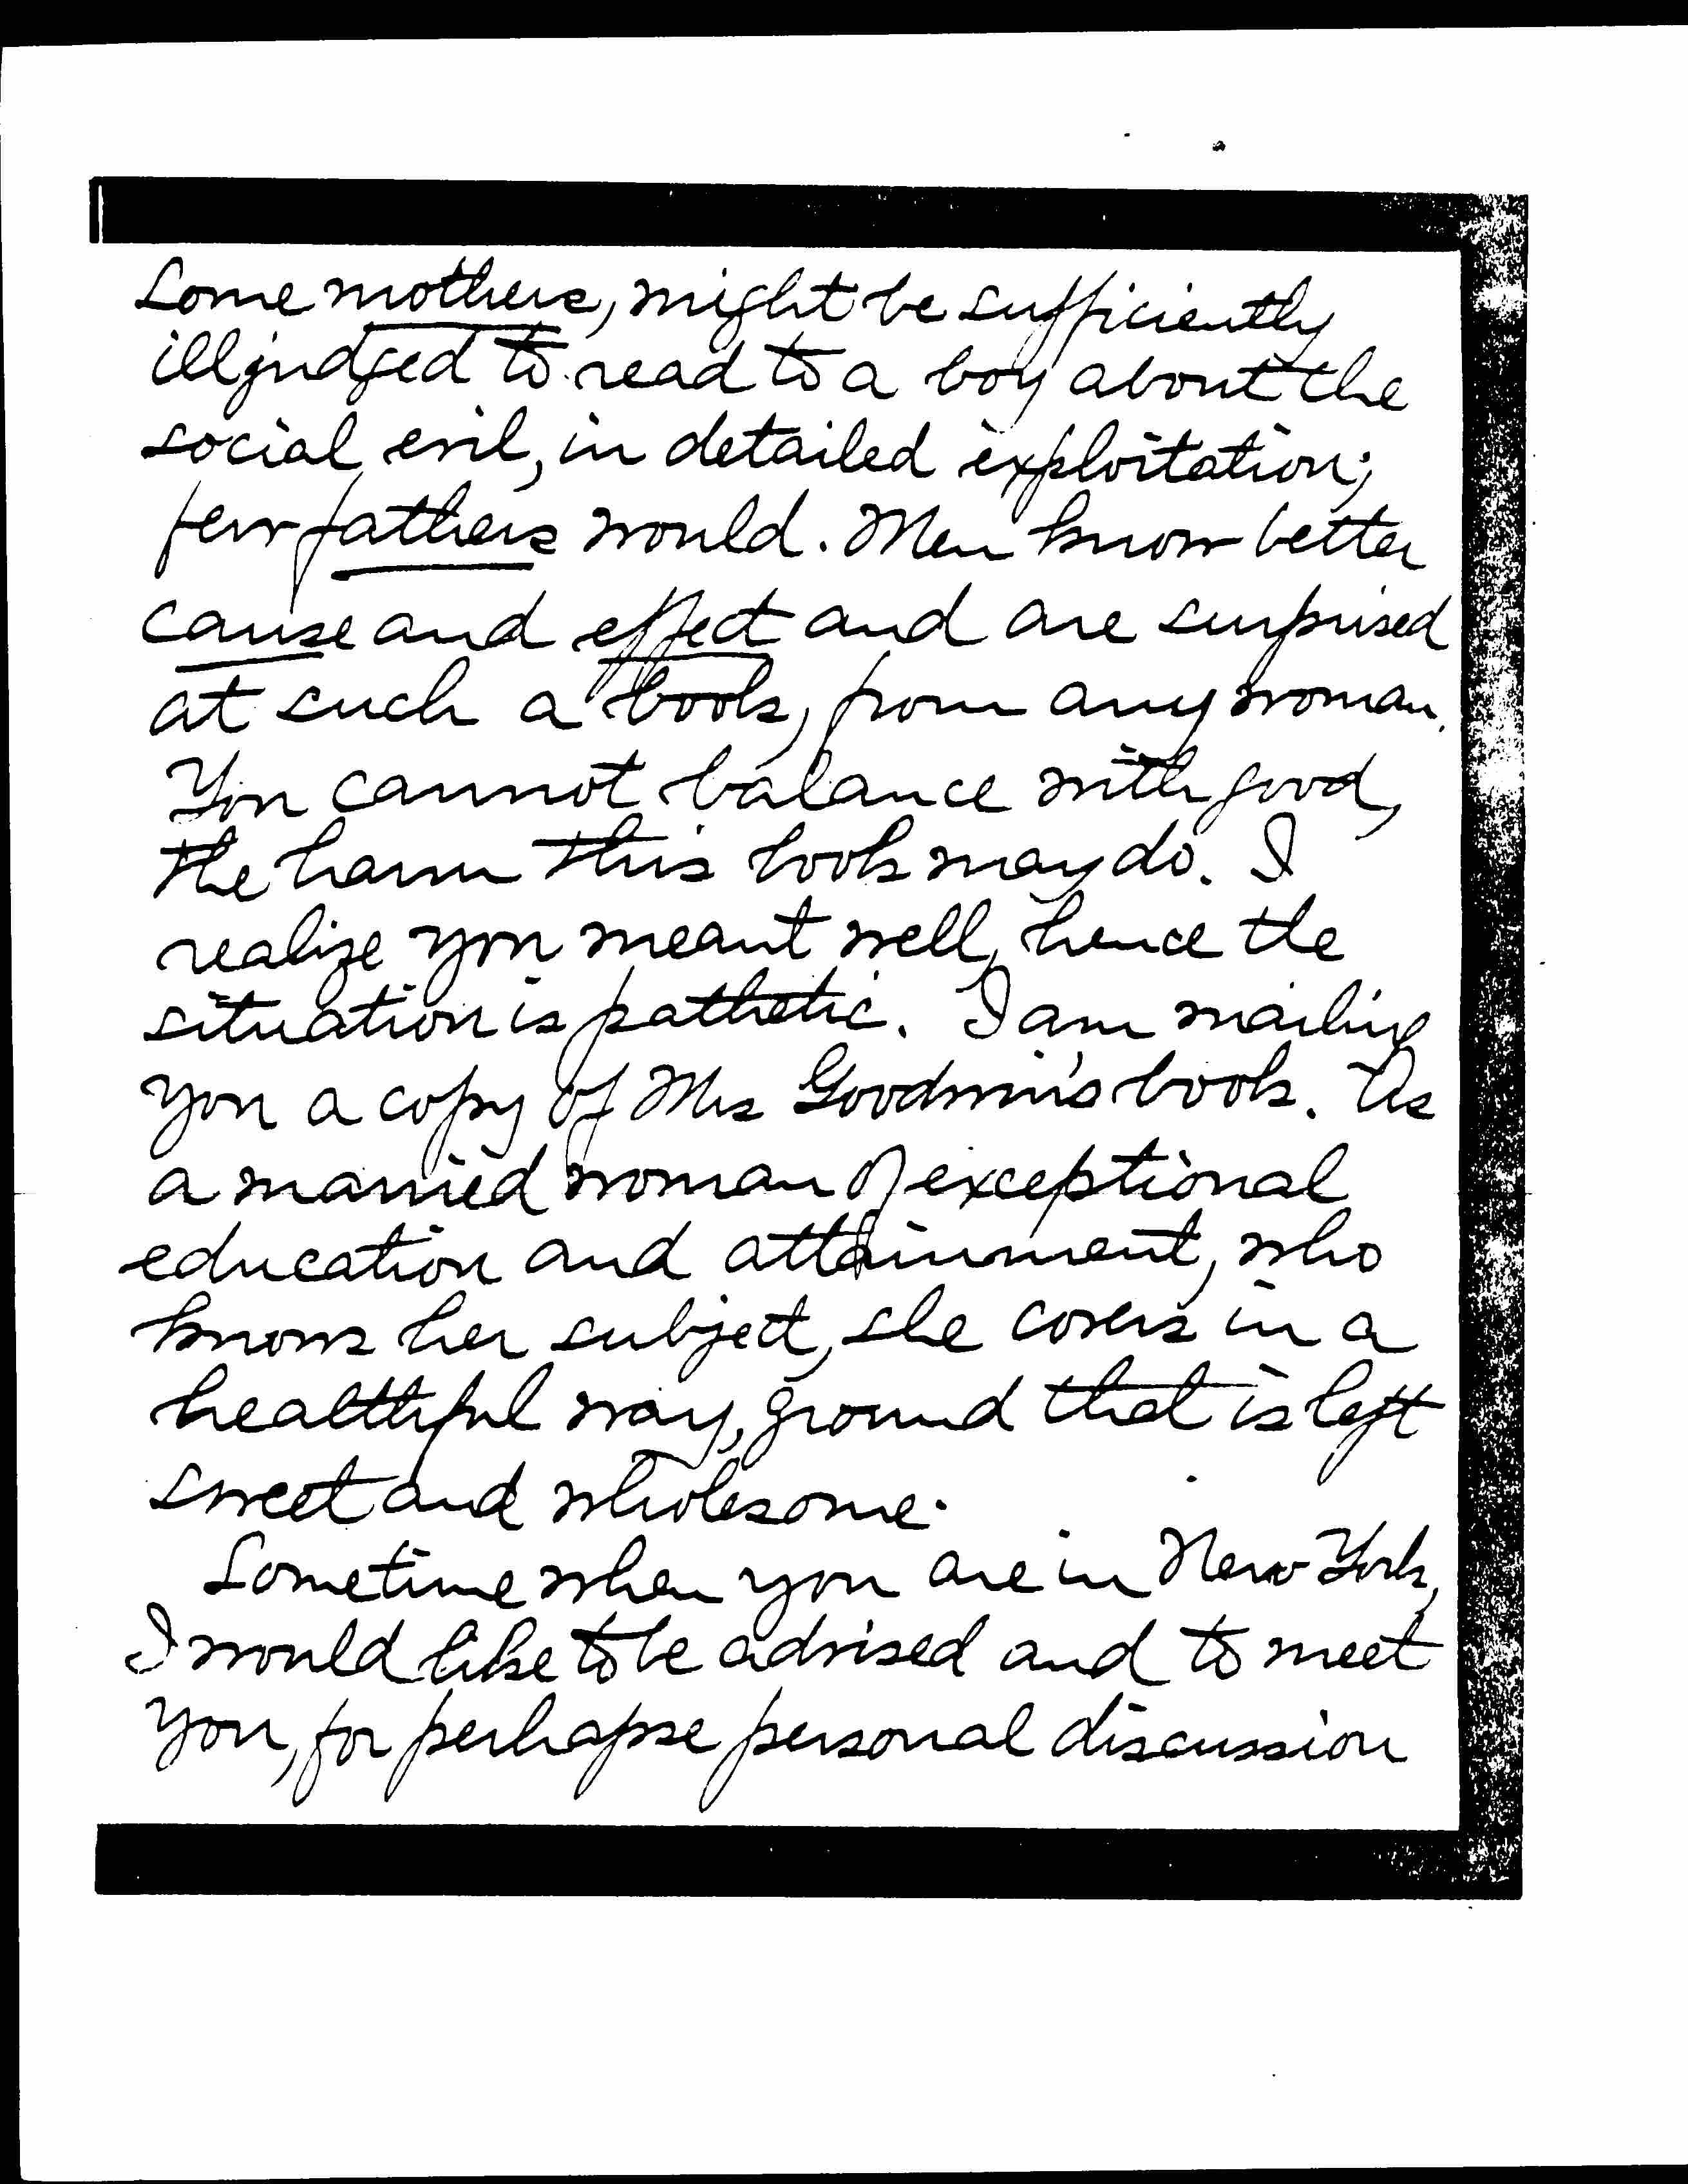 Some mothers, might be sufficiently
illjudged to read to a boy about the
social evil, in detailed exploitation;
few fathers would. Men know better
cause and effect and are surprised
at such a book, from any woman.
You cannot balance with good,
the harm this book may do. I
realize you meant well, hence the
situation is pathetic. I am mailing
you a copy of Mrs Goodwin's book. As
a married woman of exceptional
education and attainment, who
knows her subject, she covers in a
healthful way, ground that is left
sweet and wholesome.
Sometime when you are in New York,
I would like to be advised and to meet
you, for perhapse personal discussion